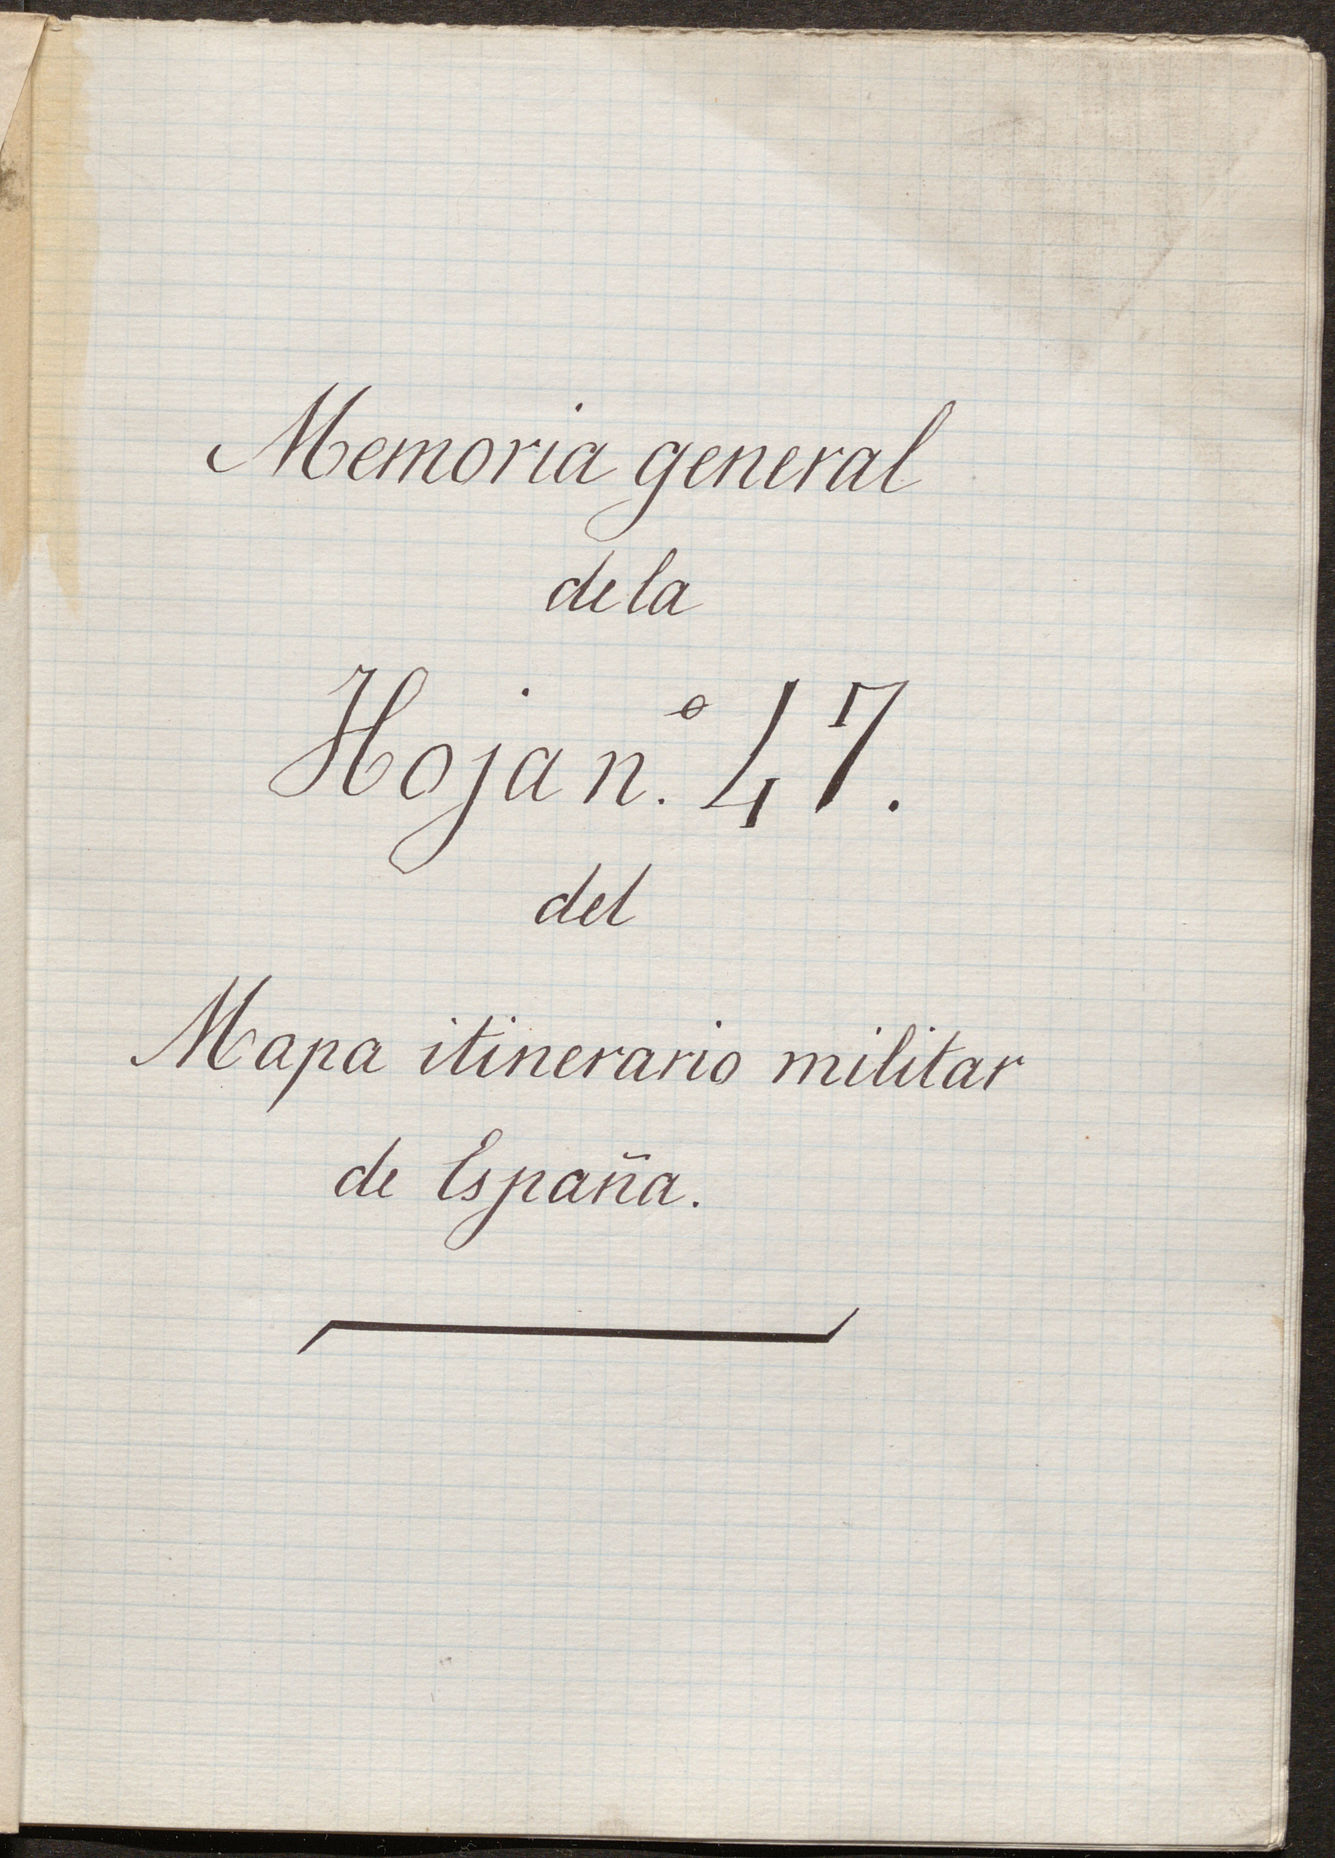 Memoria general
de la
Hoja n.º 47.
del
Mapa itinerario militar
de España.